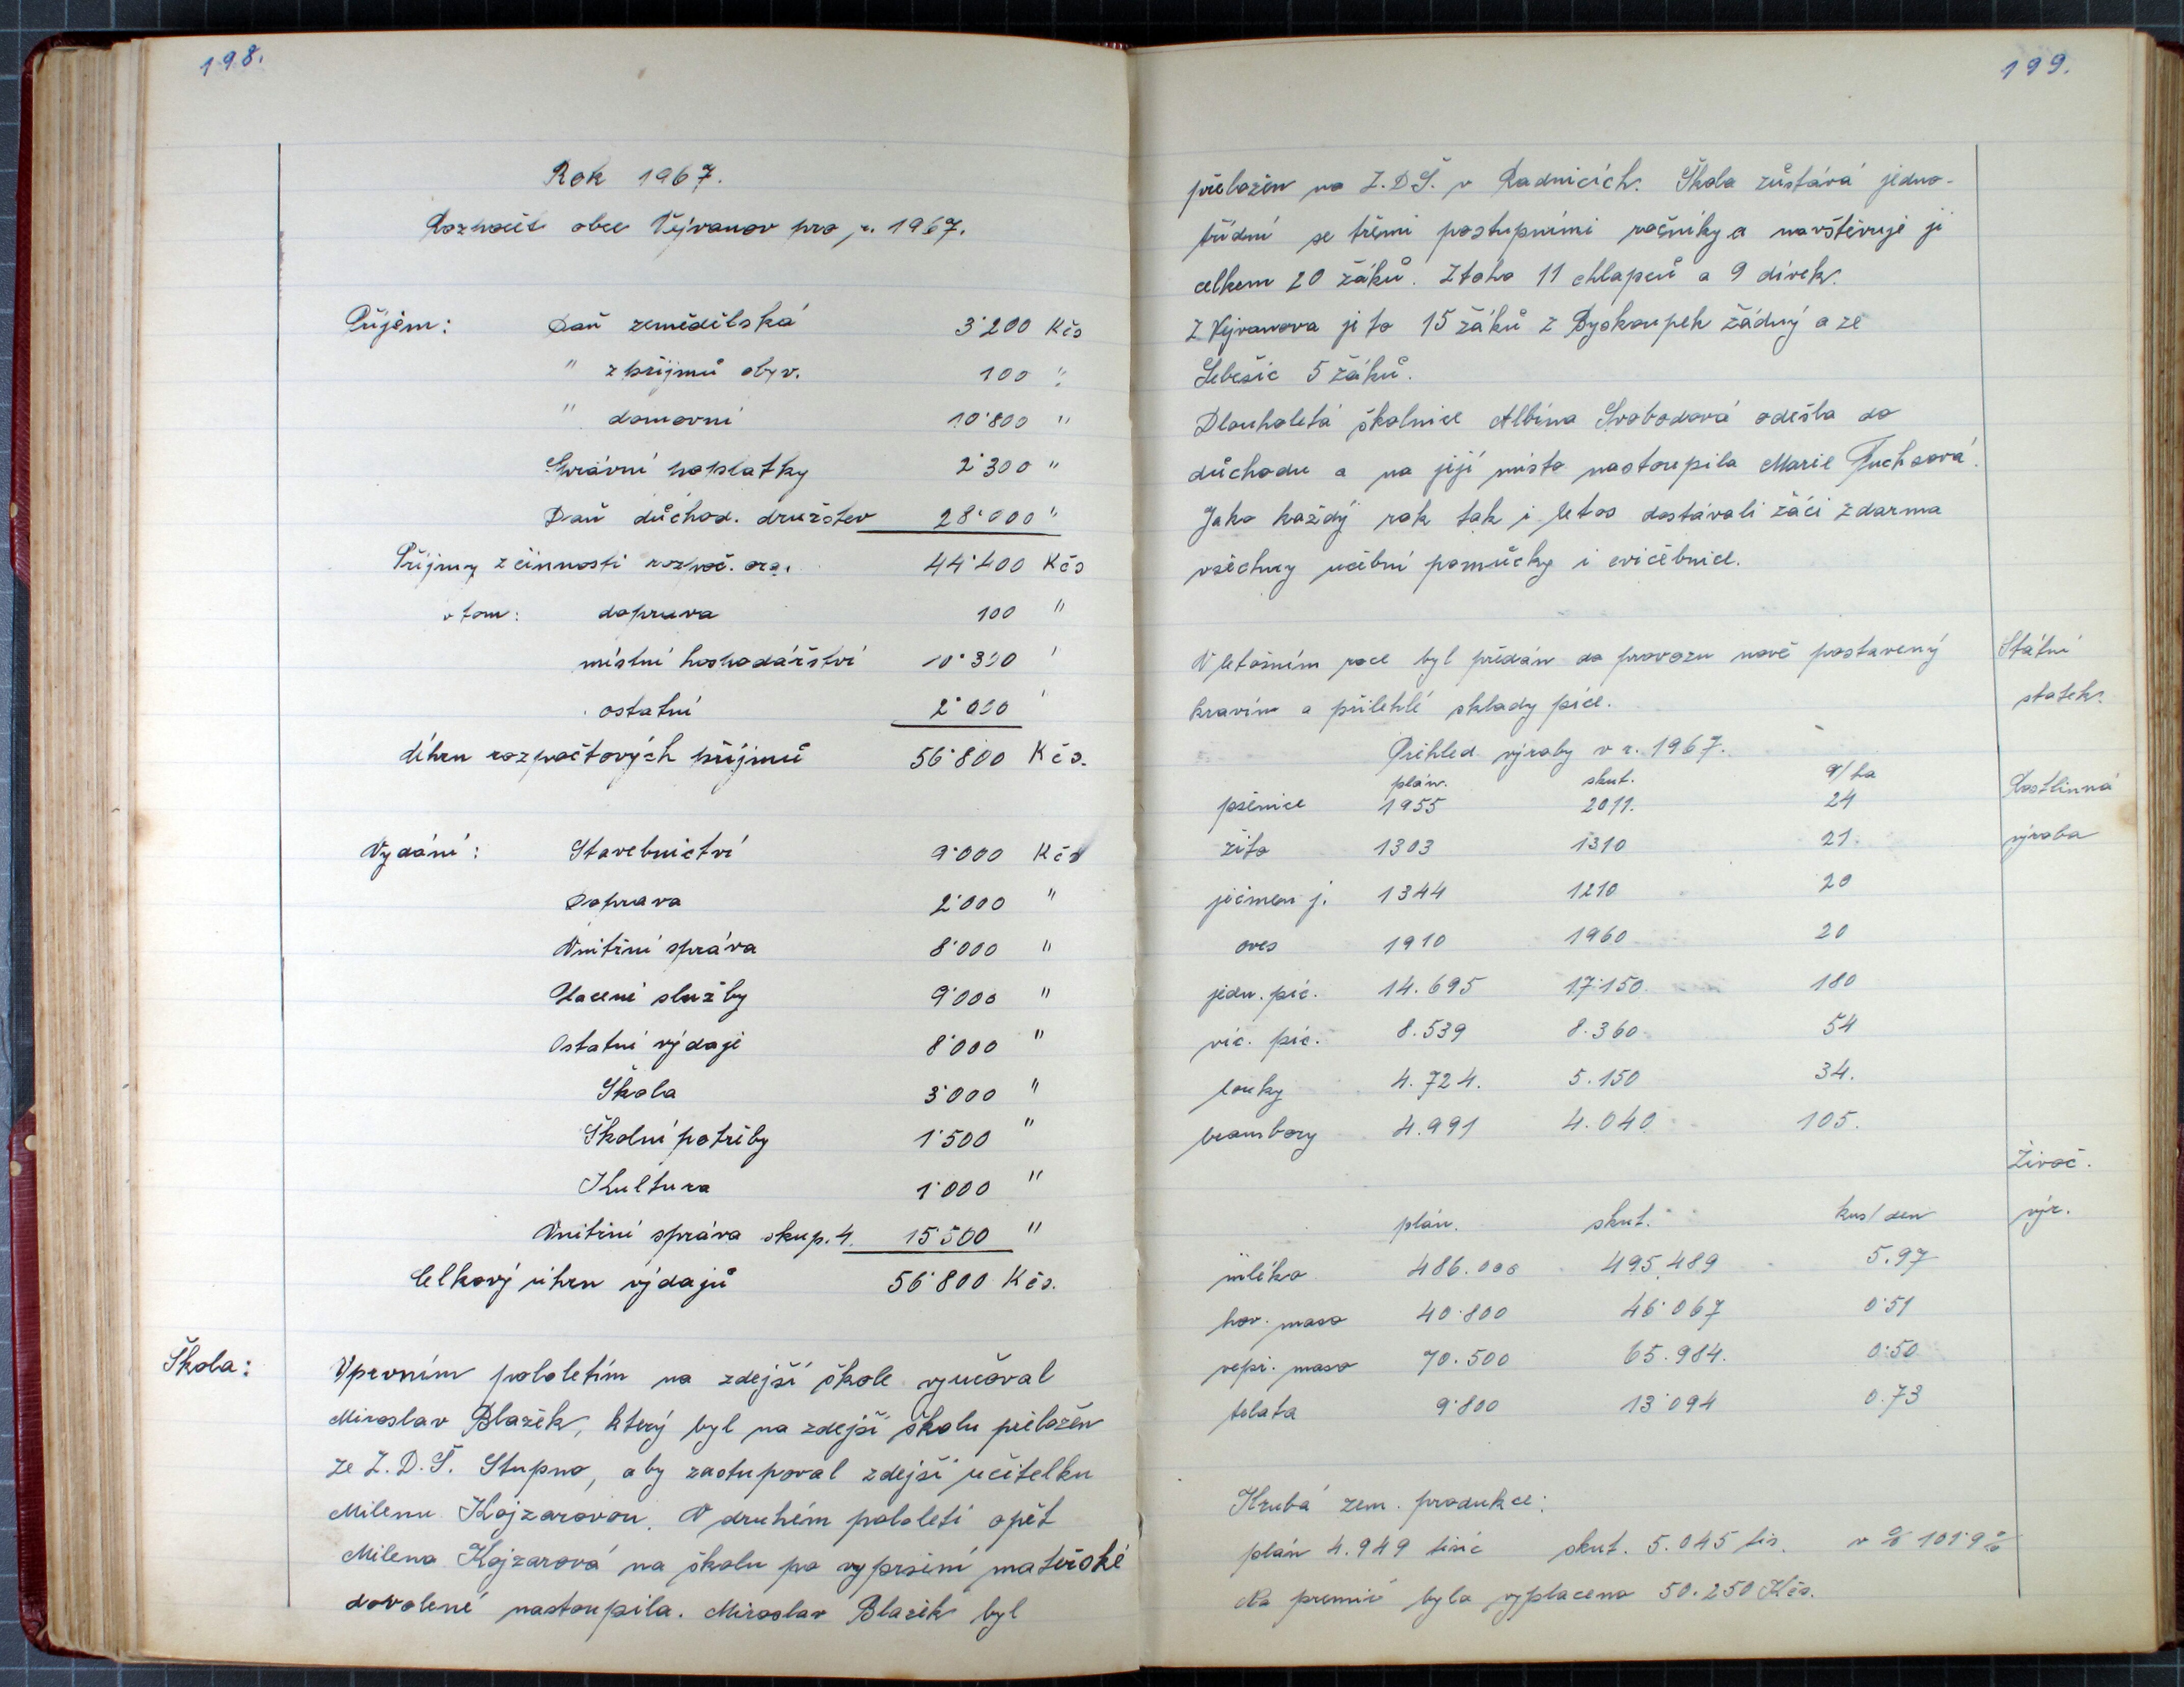 198.
Rok 1967.
Rozpočet obce Vejvanov pro r. 1967.
Příjem: Daň zemědělská 3'200 Kčs
" z příjmů obyv. 100 "
" domovní 10'800 "
Správní poplatky 2'300 "
Daň důchod. družstev 28'000 "
Příjmy z činnosti rozpoč. org. 44'400 Kčs
v tom: doprava 100 "
místní hospodářství 10'300 "
ostatní 2'000 "
Úhrn rozpočtových příjmů 56'800 Kčs.
Vydání: Stavebnictví 9'000 Kčs
Doprava 2'000 "
Vnitřní správa 8'000 "
Placené služby 9'000 "
Ostatní výdaje 8'000 "
Škola 3'000 "
Školní potřeby 1'500 "
Kultura 1'000 "
Vnitřní správa skup. 4. 15'300 "
Celkový úhrn výdajů 56'800 Kčs.
Škola: V prvním pololetím na zdejší škole vyučoval
Miroslav Blažek, který byl na zdejší školu přeložen
ze Z.D.Š. Stupno, aby zastupoval zdejší učitelku
Milenu Kojzarovou. V druhém pololetí opět
Milena Kojzarová na školu po vypršení mateřské
dovolené nastoupila. Miroslav Blažek byl
199.
přeložen na Z.D.Š. v Radnicích. Škola zůstává jedno-
třídní se třemi postupnými ročníky a navštěvuje ji
celkem 20 žáků. Z toho 11 chlapců a 9 dívek.
Z Vejvanova je to 15 žáků z Byskoupek žádný a ze
Lebešic 5 žáků.
Dlouholetá školnice Albína Svobodová odešla do
důchodu a na její místo nastoupila Marie Fuchsová.
Jako každý rok tak i letos dostávali žáci zdarma
všechny učební pomůcky i cvičebnice.
V letošním roce byl předán do provozu nově postavený Státní
kravín a přilehlé sklady píce. statek.
Přehled výroby v r. 1967.
plán. skut. q/ha Rostlinná
pšenice 1955 2011. 24
žito 1303 1310 21. výroba
ječmen j. 1344 1210 20
oves 1910 1960 20
jedn. píc. 14.695 17.150 180
víc. píc. 8.539 8.360 54
louky 4.724. 5.150 34.
brambory 4.991 4.040 105.
Živoč.
plán. skut. kus/den výr.
mléko 486.000 495.489 5.97
hov. maso 40.800 46'067 0'51
vepř. maso 70.500 65.984. 0.50
telata 9'800 13'094 0.73
Hrubá zem. produkce:
plán 4.949 tisíc skut. 5.045 tis. v % 101'9%
Na premie byla vyplaceno 50.250 Kčs.